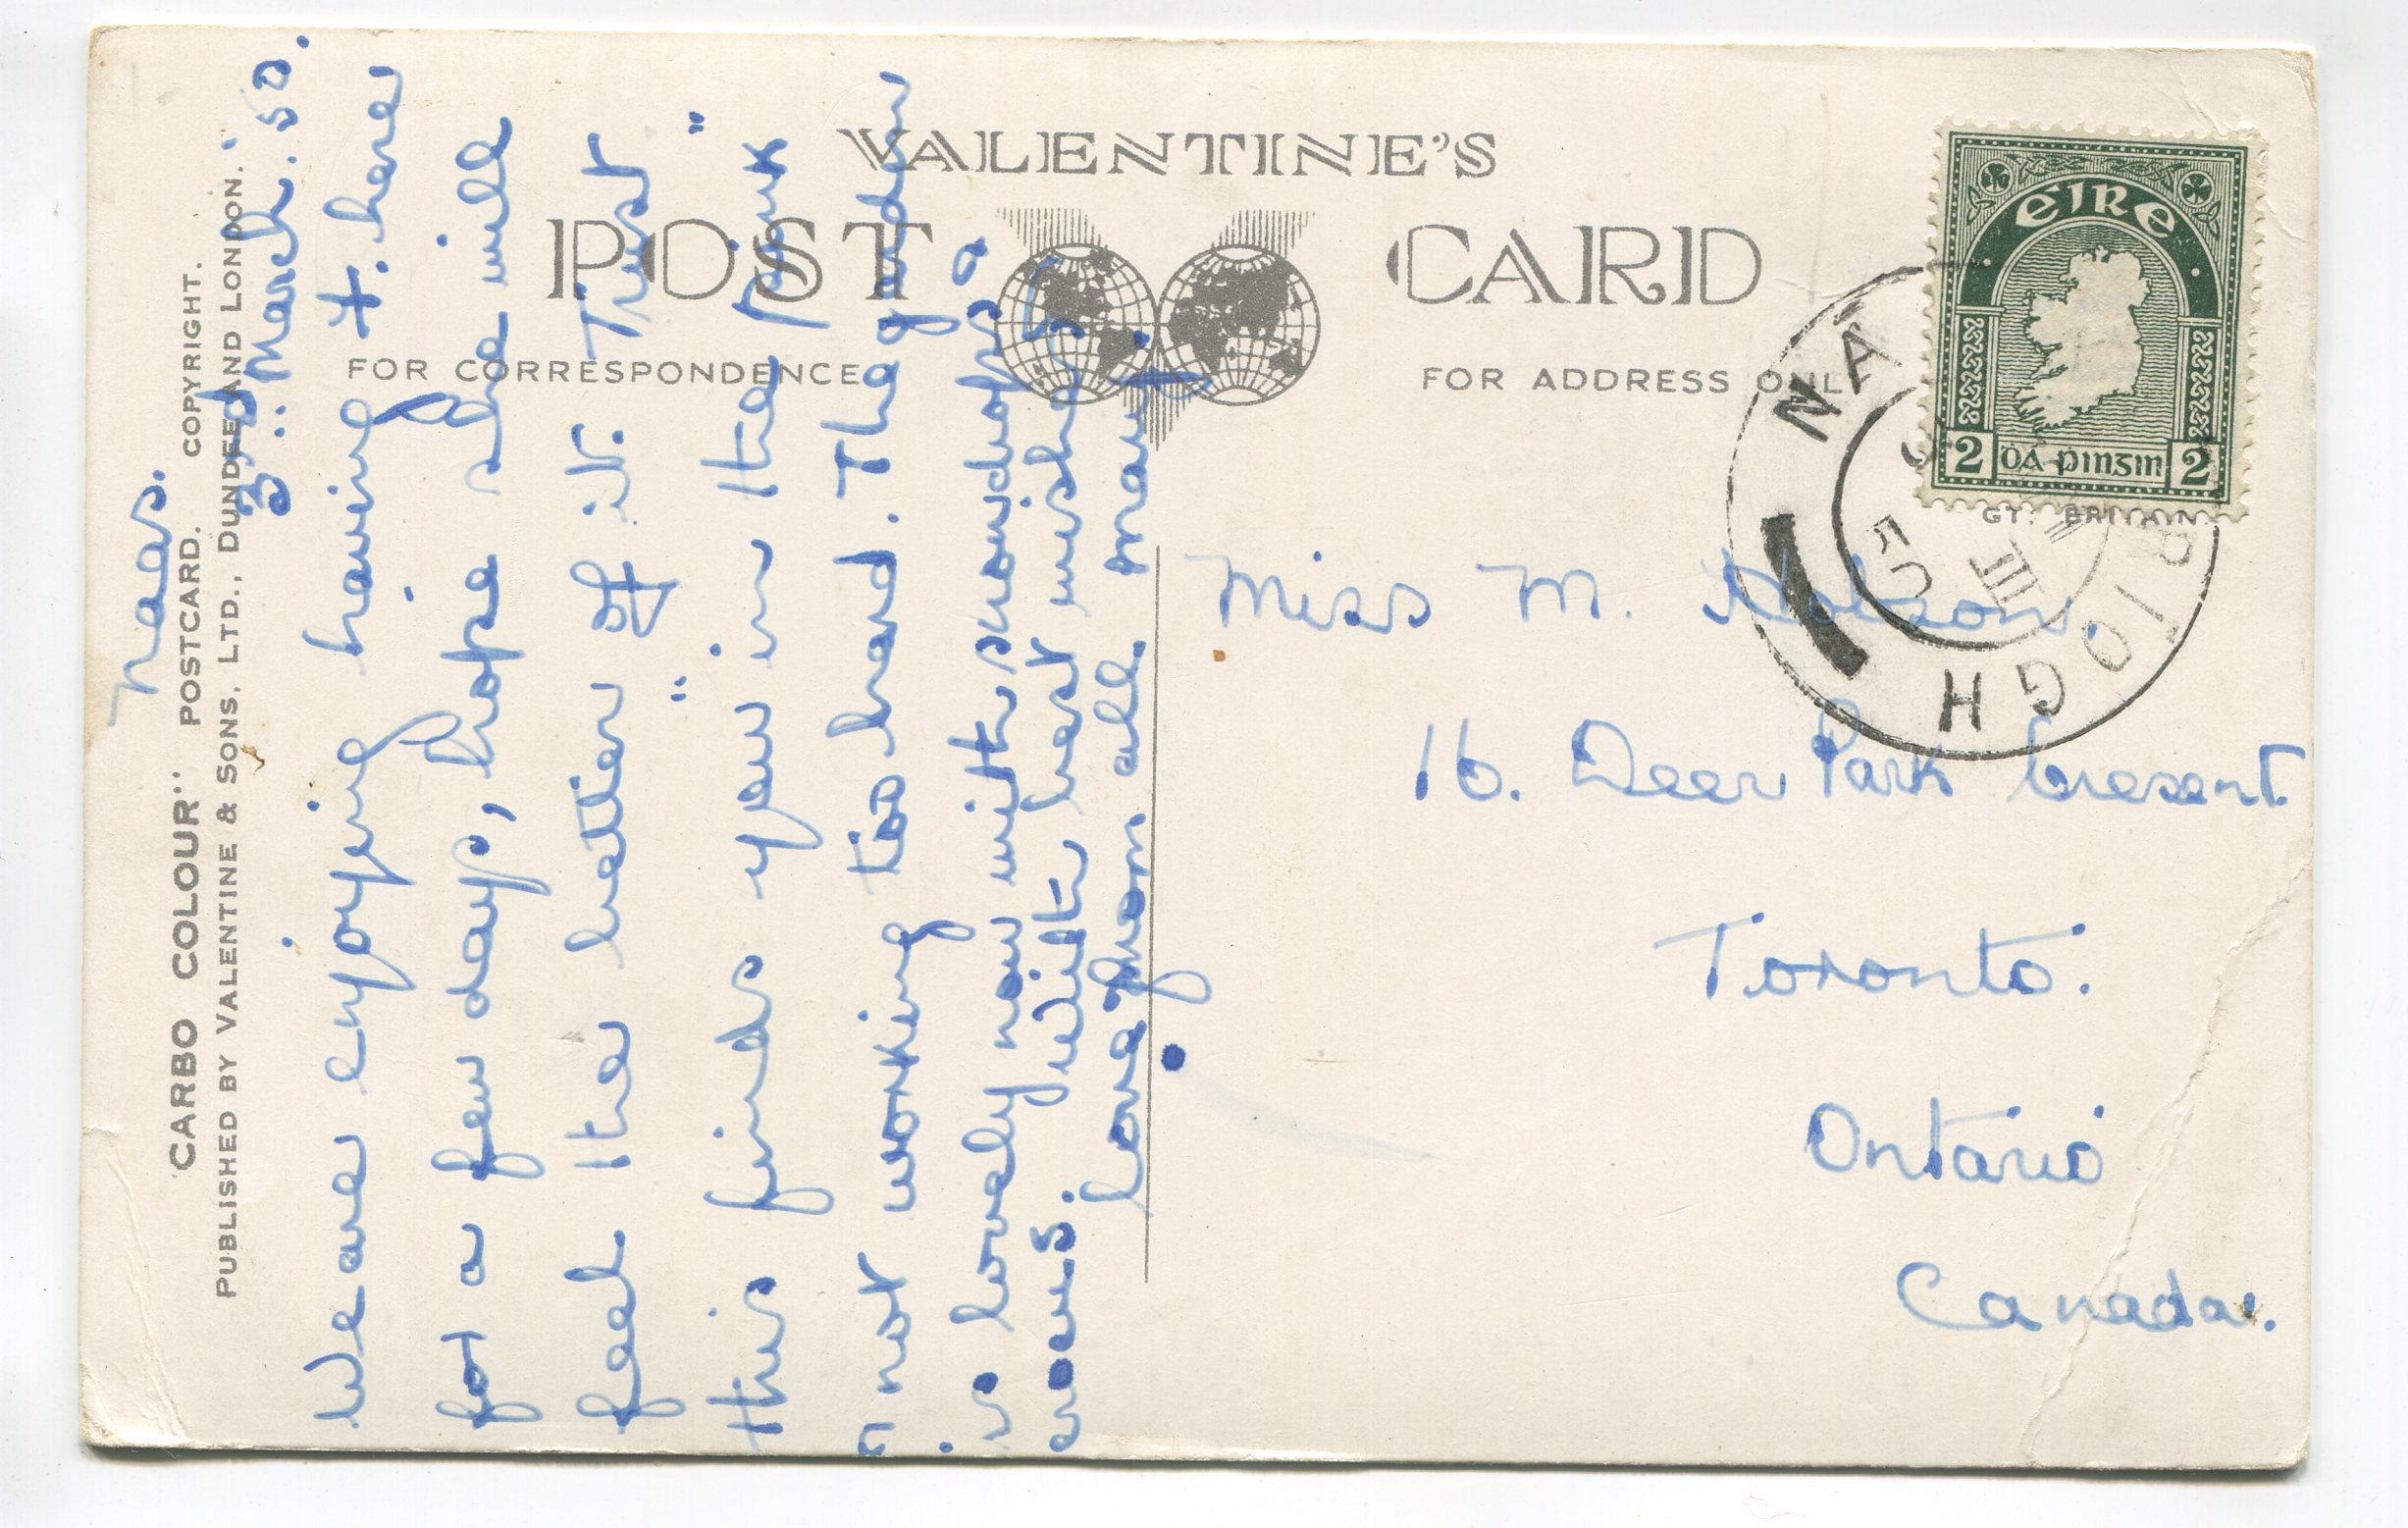 VALENTINE'S
POST CARD
FOR CORRESPONDENCE
FOR ADDRESS ONL
"CARBO COLOUR" POSTCARD. COPYRIGHT.
PUBLISHED BY VALENTINE & SONS, LTD., DUNDEE AND LONDON.
Naas.
3rd March. 50.
We are enjoying having H. here
for a few days, hope she will
feel the better of it. Trust
this finds you in the "pink"
& not working too hard. The garden
is lovely now with snowdrops &
With best wishes &
love from all. Mary.
Miss M.
16. Deer Park Cresent
Toronto.
Ontario
Canada.
éIRe
2 Dá pingin 2
GT. BRITAIN
NA
III
H